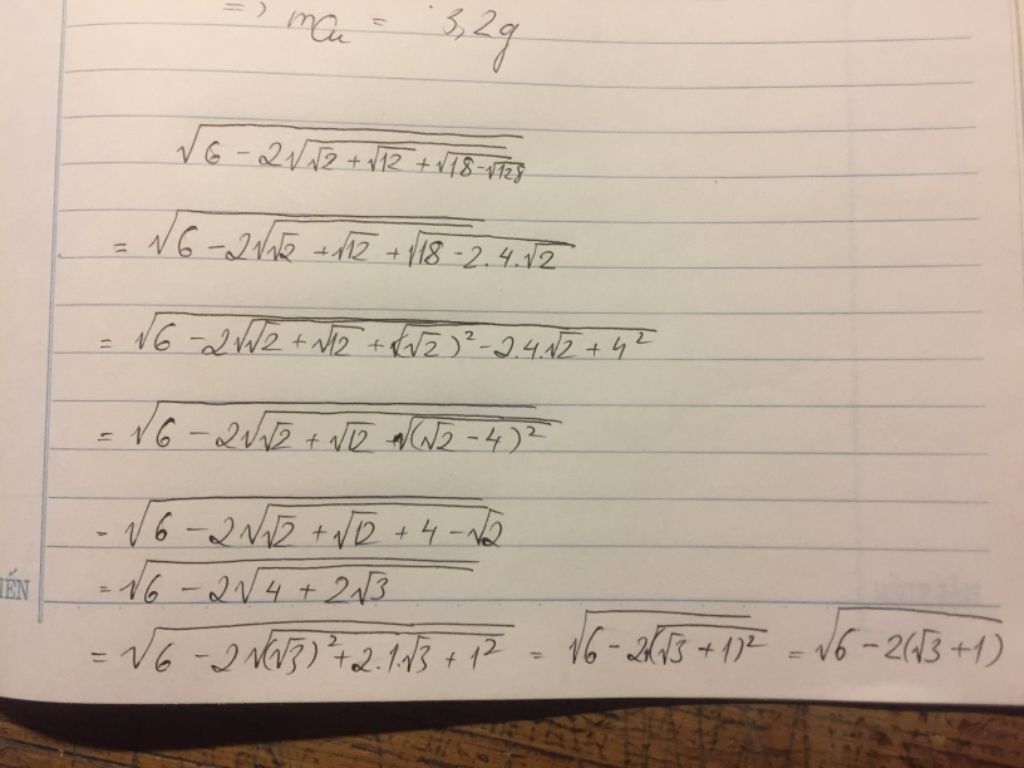 => mCu = 3,2g
√(6 - 2√(√2 + √12 + √(18 - √128)))
= √(6 - 2√(√2 + √12 + √(18 - 2.4.√2)))
= √(6 - 2√(√2 + √12 + √((√2)² - 2.4.√2 + 4²)))
= √(6 - 2√(√2 + √12 + √((√2 - 4)²)))
= √(6 - 2√(√2 + √12 + 4 - √2))
= √(6 - 2√(4 + 2√3))
= √(6 - 2√((√3)² + 2.1.√3 + 1²)) = √(6 - 2√((√3 + 1)²)) = √(6 - 2(√3 + 1))